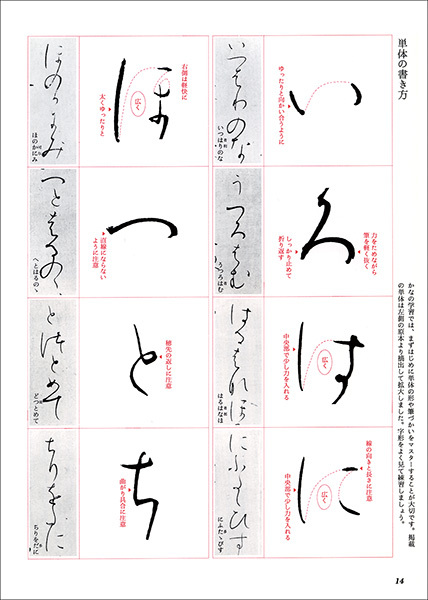 単体の書き方
かなの学習では、まずはじめに単体の形や筆づかいをマスターすることが大切です。掲載
の単体は左側の原本より摘出して拡大しました。字形をよく見て練習しましょう。
い
ゆったりと向かい合うように
いつはりのな
ろ
力をためながら
筆を軽く抜く
しっかり止めて
折り返す
うつろはむ
は
広く
中央部で少し力を入れる
はるはなは
に
線の向きと長さに注意
広く
中央部で少し力を入れる
にふたゝびす
ほ
右側は軽快に
広く
太くゆったりと
ほのかにみ
へ
直線にならない
ように注意
へとはるのゝ
と
穂先の返しに注意
どつとめて
ち
曲がり具合に注意
ちりをだに
14